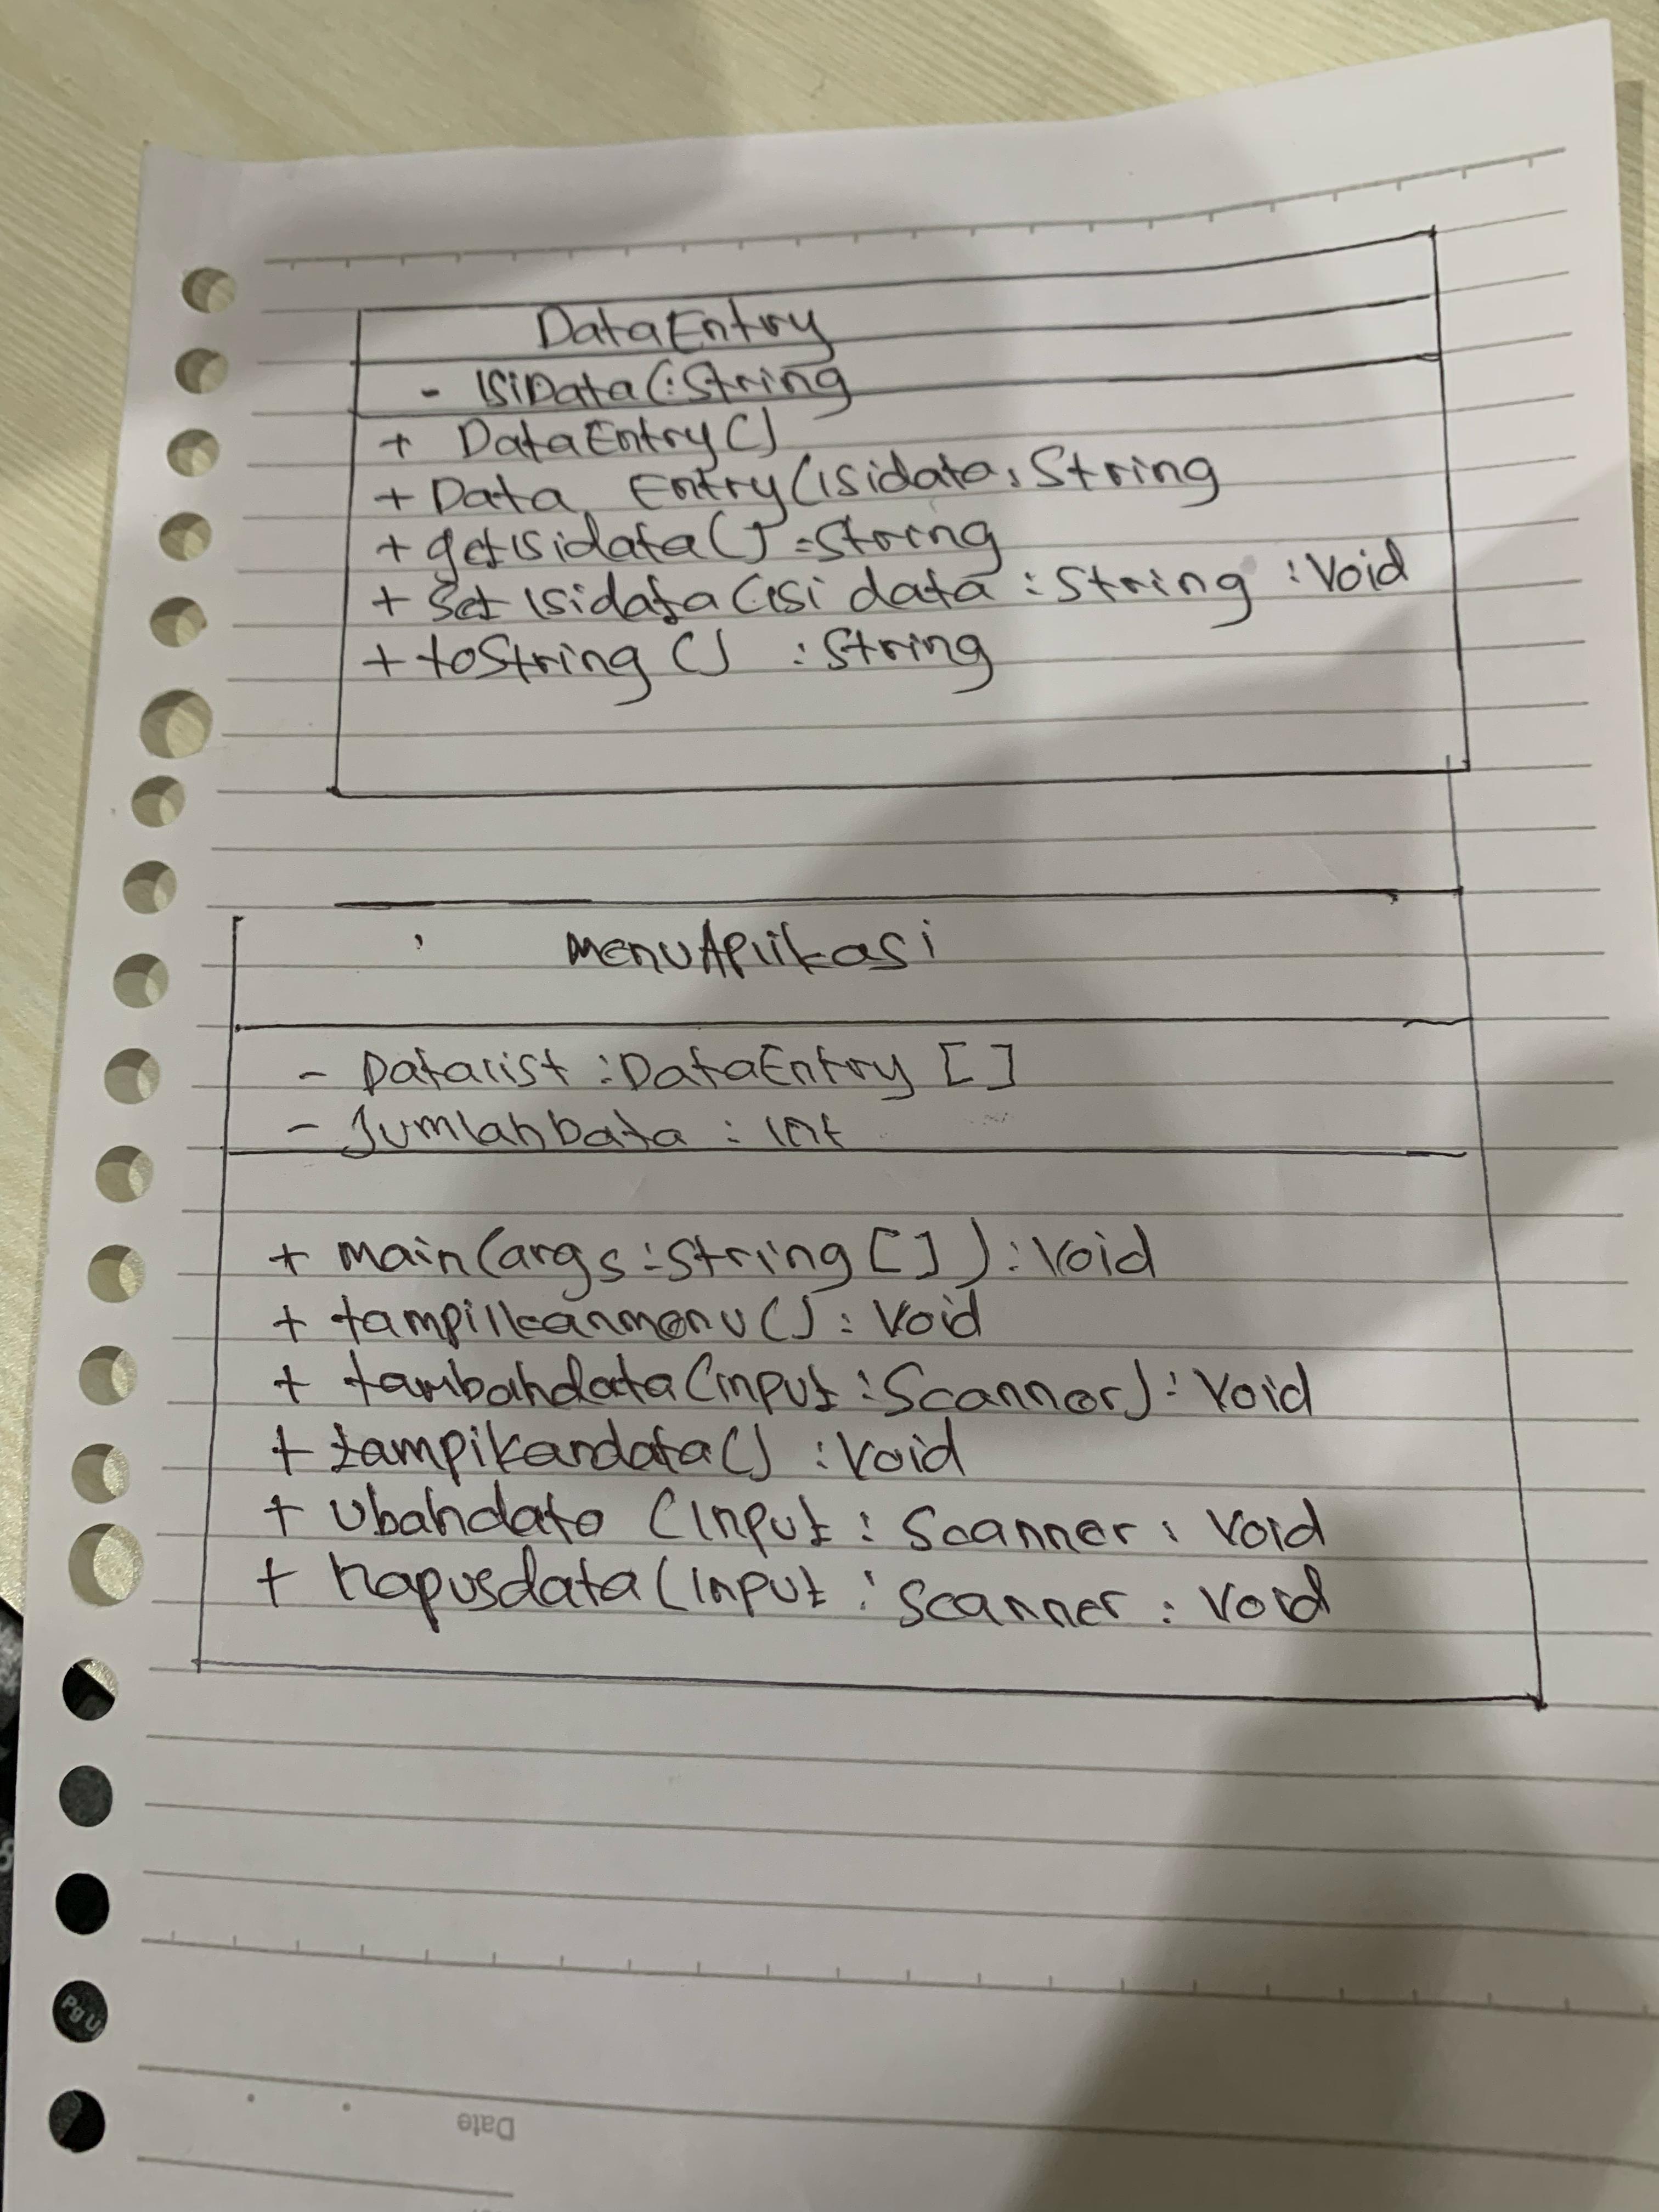 DataEntry
- isiData(:String
+ DataEntry()
+ Data Entry(isidata: String
+ getisidata() =String
+ Set isidata(isi data : String : Void
+ toString () : String
menuAplikasi
- Datalist :DataEntry []
- JumlahData : int
+ main(args:String[]):Void
+ tampilkanmenu(): Void
+ tambahdata(input :Scanner): Void
+ tampikandata() :Void
+ Ubahdata (input : Scanner: Void
+ hapusdata(input : Scanner : Void
Pg U
Date